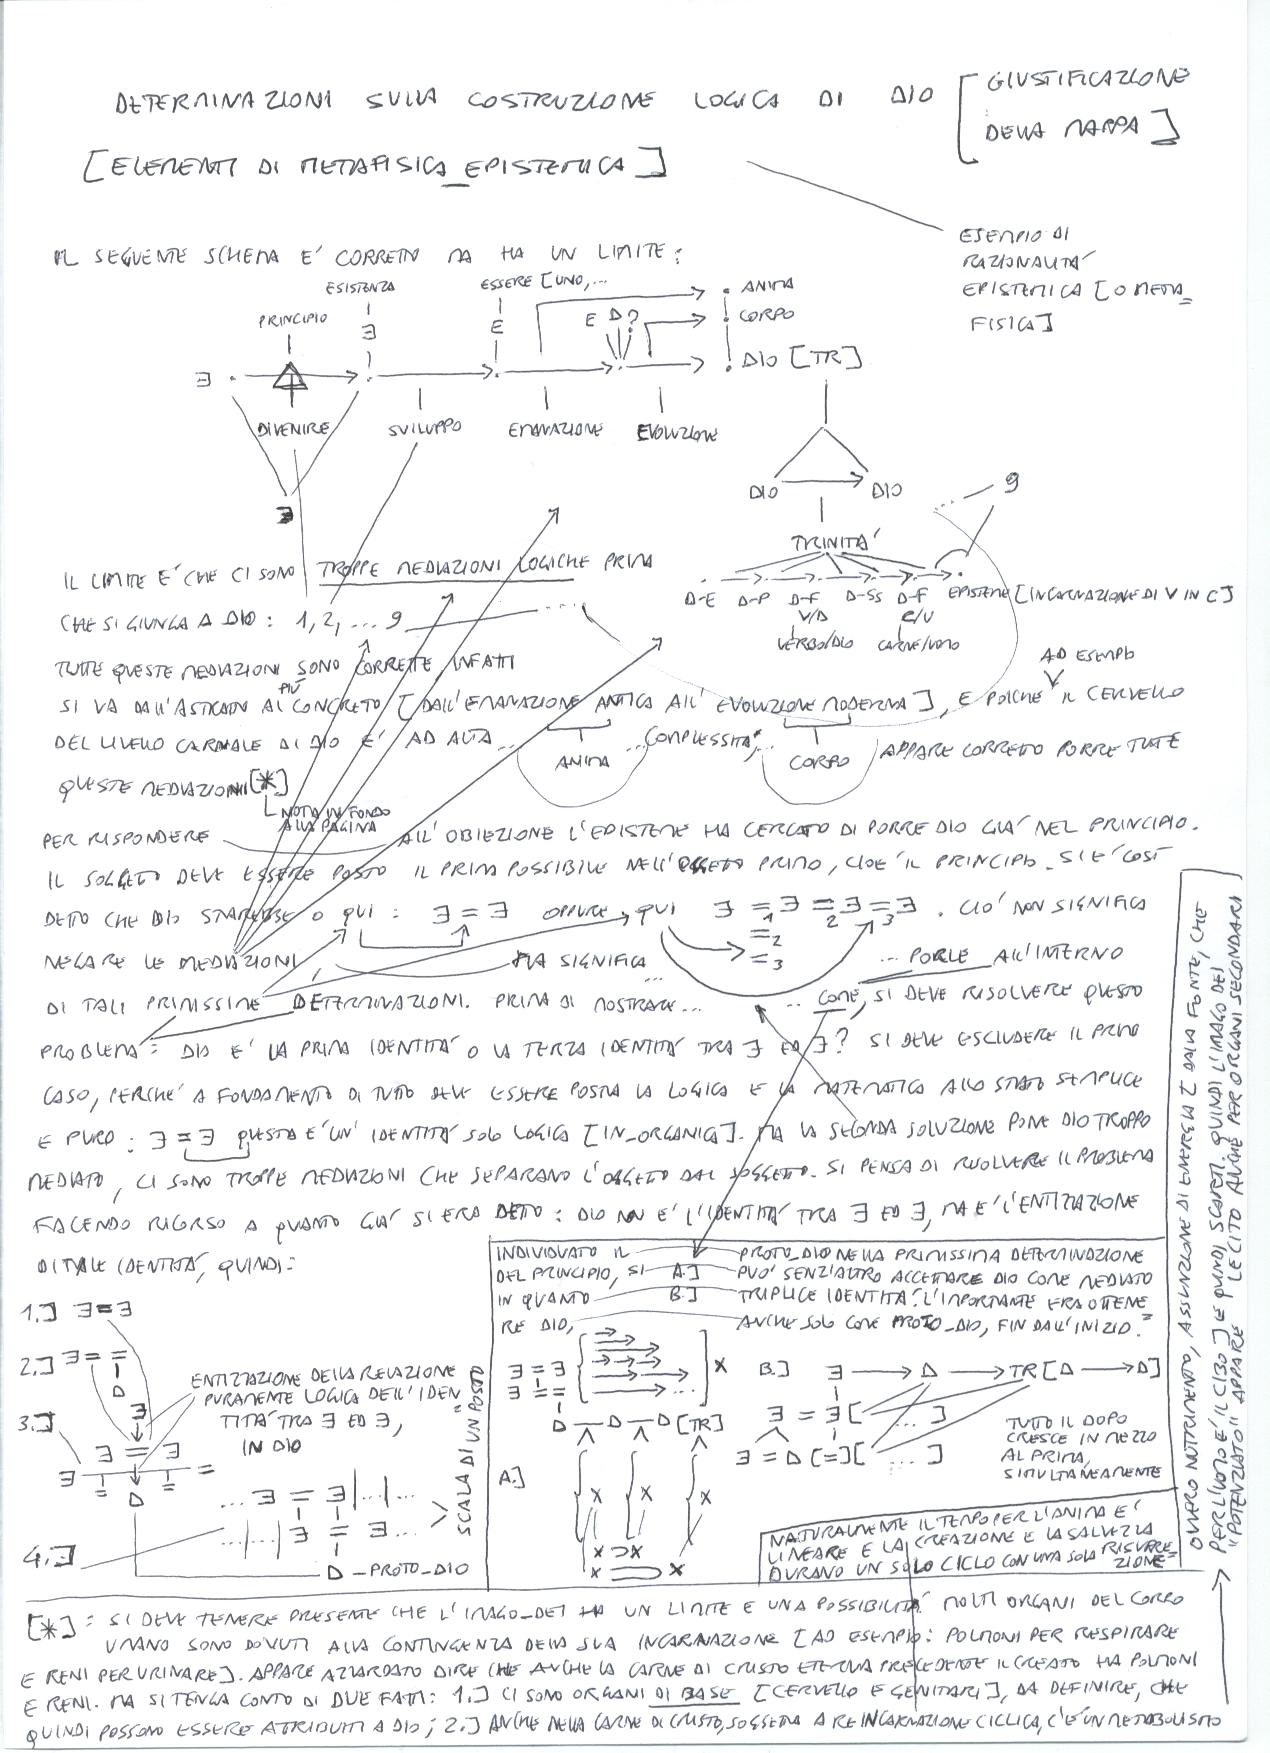 DETERMINAZIONI SULLA COSTRUZIONE LOGICA DI DIO [GIUSTIFICAZIONE
DELLA MAPPA]
[ELEMENTI DI METAFISICA_EPISTEMICA]
ESEMPIO DI
RAZIONALITA'
EPISTEMICA [O META=
FISICA]
IL SEGUENTE SCHEMA E' CORRETTO MA HA UN LIMITE:
ESISTENZA
ESSERE [UNO,...
ANIMA
PRINCIPIO
∃
E
E D?
CORPO
∃
DIO [TR]
DIVENIRE
SVILUPPO
EMANAZIONE
EVOLUZIONE
∃
DIO
DIO
... 9
TRINITA'
D-E D-P D-F D-SS D-F EPISTEME [INCARNAZIONE DI V IN C]
V/D
C/U
VERBO/DIO
CARNE/UOMO
IL LIMITE E' CHE CI SONO TROPPE MEDIAZIONI LOGICHE PRIMA
CHE SI GIUNGA A DIO: 1, 2, ... 9 ...
TUTTE QUESTE MEDIAZIONI SONO CORRETTE INFATTI
SI VA DALL'ASTRATTO AL PIÙ CONCRETO [DALL'EMANAZIONE ANTICA ALL'EVOLUZIONE MODERNA], E POICHE' AD ESEMPIO IL CERVELLO
DEL LIVELLO CARNALE DI DIO E' AD ALTA... ...COMPLESSITA', APPARE CORRETTO PORRE TUTTE
ANIMA
CORPO
QUESTE MEDIAZIONI [*]
NOTA IN FONDO
ALLA PAGINA
PER RISPONDERE ALL'OBIEZIONE L'EPISTEME HA CERCATO DI PORRE DIO GIA' NEL PRINCIPIO.
IL SOGGETTO DEVE ESSERE POSTO IL PRIMA POSSIBILE NELL'OGGETTO PRIMO, CIOE' IL PRINCIPIO. SI E' COSI'
DETTO CHE DIO STAREBBE O QUI: ∃ = ∃ OPPURE QUI ∃ =1 ∃ =2 ∃ =3 ∃. CIO' NON SIGNIFICA
=2
=3
NEGARE LE MEDIAZIONI MA SIGNIFICA ... ... PORLE ALL'INTERNO
DI TALI PRIMISSIME DETERMINAZIONI. PRIMA DI MOSTRARE... ... COME, SI DEVE RISOLVERE QUESTO
PROBLEMA: DIO E' LA PRIMA IDENTITA' O LA TERZA IDENTITA' TRA ∃ ED ∃? SI DEVE ESCLUDERE IL PRIMO
CASO, PERCHE' A FONDAMENTO DI TUTTO DEVE ESSERE POSTA LA LOGICA E LA MATEMATICA ALLO STATO SEMPLICE
E PURO: ∃ = ∃ QUESTA E' UN'IDENTITA' SOLO LOGICA [IN_ORGANICA]. MA LA SECONDA SOLUZIONE PONE DIO TROPPO
MEDIATO, CI SONO TROPPE MEDIAZIONI CHE SEPARANO L'OGGETTO DAL SOGGETTO. SI PENSA DI RISOLVERE IL PROBLEMA
FACENDO RICORSO A QUANTO GIA' SI ERA DETTO: DIO NON E' L'IDENTITA' TRA ∃ ED ∃, MA E' L'ENTIZZAZIONE
DI TALE IDENTITA', QUINDI:
1.] ∃ = ∃
2.] ∃ = =
D
3.] ∃
∃ = ∃
∃ = = =
D
ENTIZZAZIONE DELLA RELAZIONE
PURAMENTE LOGICA DELL'IDEN=
TITA' TRA ∃ ED ∃,
IN DIO
4.] ... ∃ = ∃ |...|...
...|...| ∃ = ∃ ...
D_PROTO_DIO
SCALA DI UN POSTO
INDIVIDUATO IL PROTO_DIO NELLA PRIMISSIMA DETERMINAZIONE
DEL PRINCIPIO, SI A.] PUO' SENZ'ALTRO ACCETTARE DIO COME MEDIATO
IN QUANTO B.] TRIPLICE IDENTITA'. L'IMPORTANTE ERA OTTENE=
RE DIO, ANCHE SOLO COME PROTO_DIO, FIN DALL'INIZIO.
∃ = ∃
∃ = =
X
D — D — D [TR]
A.]
X X X
X ⊃ X
X ⊃ X
B.] ∃ → D → TR [D → D]
∃ = ∃ [ ... ]
∃ = D [=] [ ... ]
TUTTO IL DOPO
CRESCE IN MEZZO
AL PRIMA,
SIMULTANEAMENTE
NATURALMENTE IL TEMPO PER L'ANIMA E'
LINEARE E LA CREAZIONE E LA SALVEZZA
DURANO UN SOLO CICLO CON UNA SOLA RISURRE=
ZIONE
[*]: SI DEVE TENERE PRESENTE CHE L'IMAGO_DEI HA UN LIMITE E UNA POSSIBILITA' MOLTI ORGANI DEL CORPO
UMANO SONO DOVUTI ALLA CONTINGENZA DELLA SUA INCARNAZIONE [AD ESEMPIO: POLMONI PER RESPIRARE
E RENI PER URINARE]. APPARE AZZARDATO DIRE CHE ANCHE LA CARNE DI CRISTO ETERNA PRECEDENTE IL CREATO HA POLMONI
E RENI. MA SI TENGA CONTO DI DUE FATTI: 1.] CI SONO ORGANI DI BASE [CERVELLO E GENITALI], DA DEFINIRE, CHE
QUINDI POSSONO ESSERE ATTRIBUITI A DIO; 2.] ANCHE NELLA CARNE DI CRISTO, SOGGETTA A REINCARNAZIONE CICLICA, C'E' UN METABOLISMO
OVVERO NUTRIMENTO, ASSUNZIONE DI ENERGIA [DALLA FONTE, CHE
PER L'UOMO E' IL CIBO] E QUINDI SCOPERTI. QUINDI L'IMAGO DEI
"POTENZIATO" APPARE LECITO ANCHE PER ORGANI SECONDARI